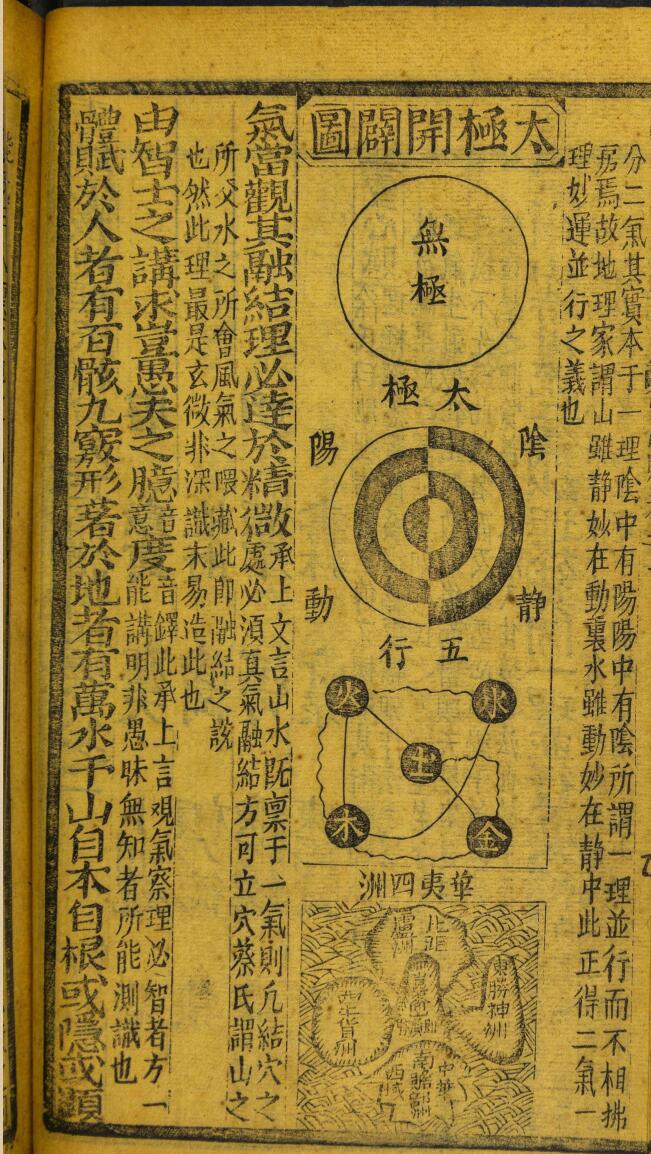 分二氣其實本于一理陰中有陽陽中有陰所謂一理並行而不相拂
焉故地理家謂山雖静妙在動裏水雖動妙在静中此正得二氣一
理妙運並行之義也
太極開闢圖
無極
太極
陰
陽
静
動
五行
水
火
土
金
木
華夷四洲
東勝神洲
中華
西域
氣當觀其融結理必達於精微
承上文言山水既禀于一氣則凢結穴之
精微處必湏真氣融結方可立穴蔡氏謂山之
所交水之所會風氣之隈藏此即融結之説
也然此理最是玄微非深識末易造此也
由智士之講求豈愚夫之臆度
臆音意度音鐸此承上言觀氣察理必智者方
能講明非愚昧無知者所能測識也
體賦於人者有百骸九竅形著於地者有萬水千山自本自根或隱或顯